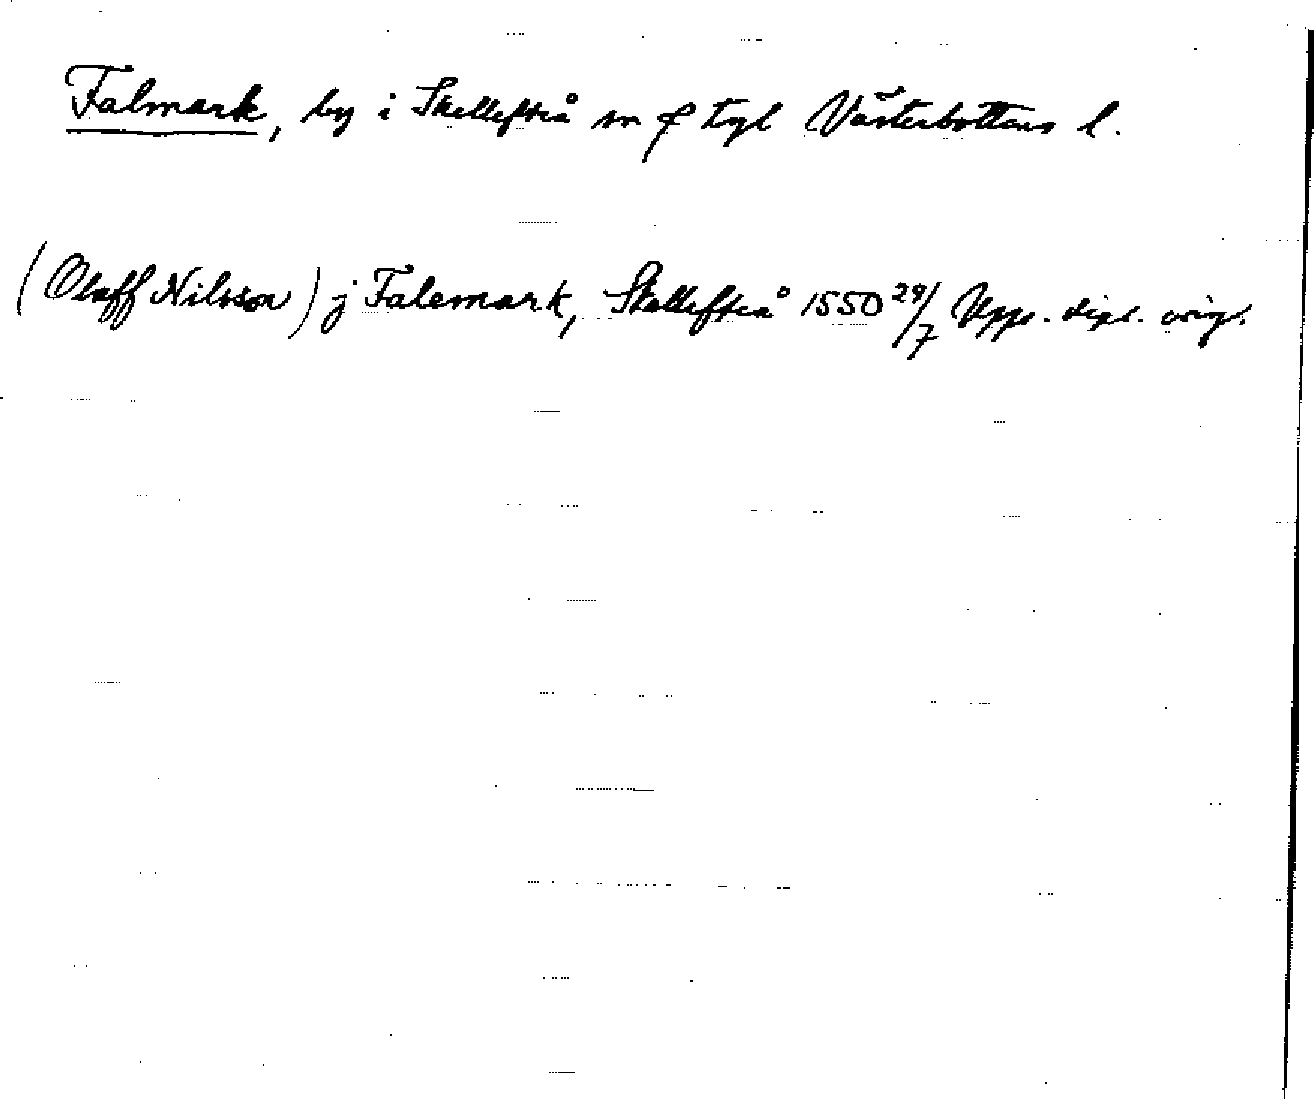 Falmark, by i Skellefteå sn o tgl Västerbottens l.
(Olaff Nilsson) j Falemark, Skellefteå 1550 29/7 Upps. dipl. orig.